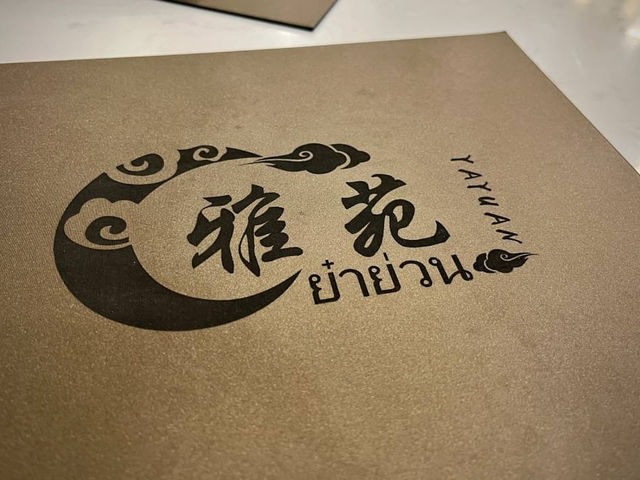 雅苑
YAYUAN
ย๋าย่วน